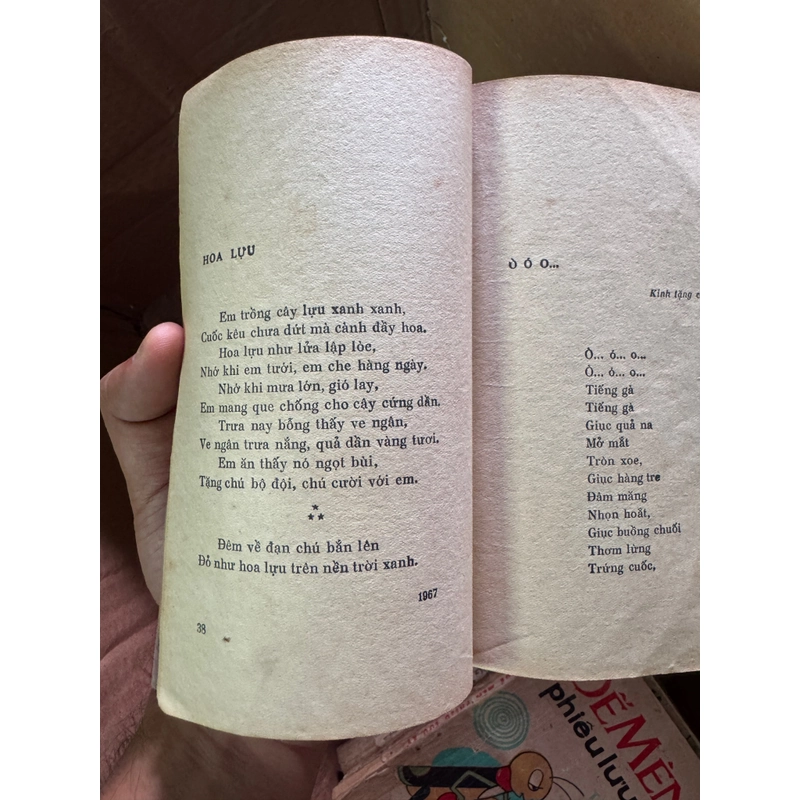 HOA LỰU
Em trồng cây lựu xanh xanh,
Cuốc kêu chưa dứt mà cành đầy hoa.
Hoa lựu như lửa lập lòe,
Nhớ khi em tưới, em che hàng ngày.
Nhớ khi mưa lớn, gió lay,
Em mang que chống cho cây cứng dần.
Trưa nay bỗng thấy ve ngân,
Ve ngân trưa nắng, quả dần vàng tươi.
Em ăn thấy nó ngọt bùi,
Tặng chú bộ đội, chú cười với em.
*
* *
Đêm về đạn chú bắn lên
Đỏ như hoa lựu trên nền trời xanh.
1967
38
Ò Ó O...
Kính tặng
Ò... ó... o...
Ò... ó... o...
Tiếng gà
Tiếng gà
Giục quả na
Mở mắt
Tròn xoe,
Giục hàng tre
Đâm măng
Nhọn hoắt,
Giục buồng chuối
Thơm lừng
Trứng cuốc,
DẾ MÈN
phiêu lưu